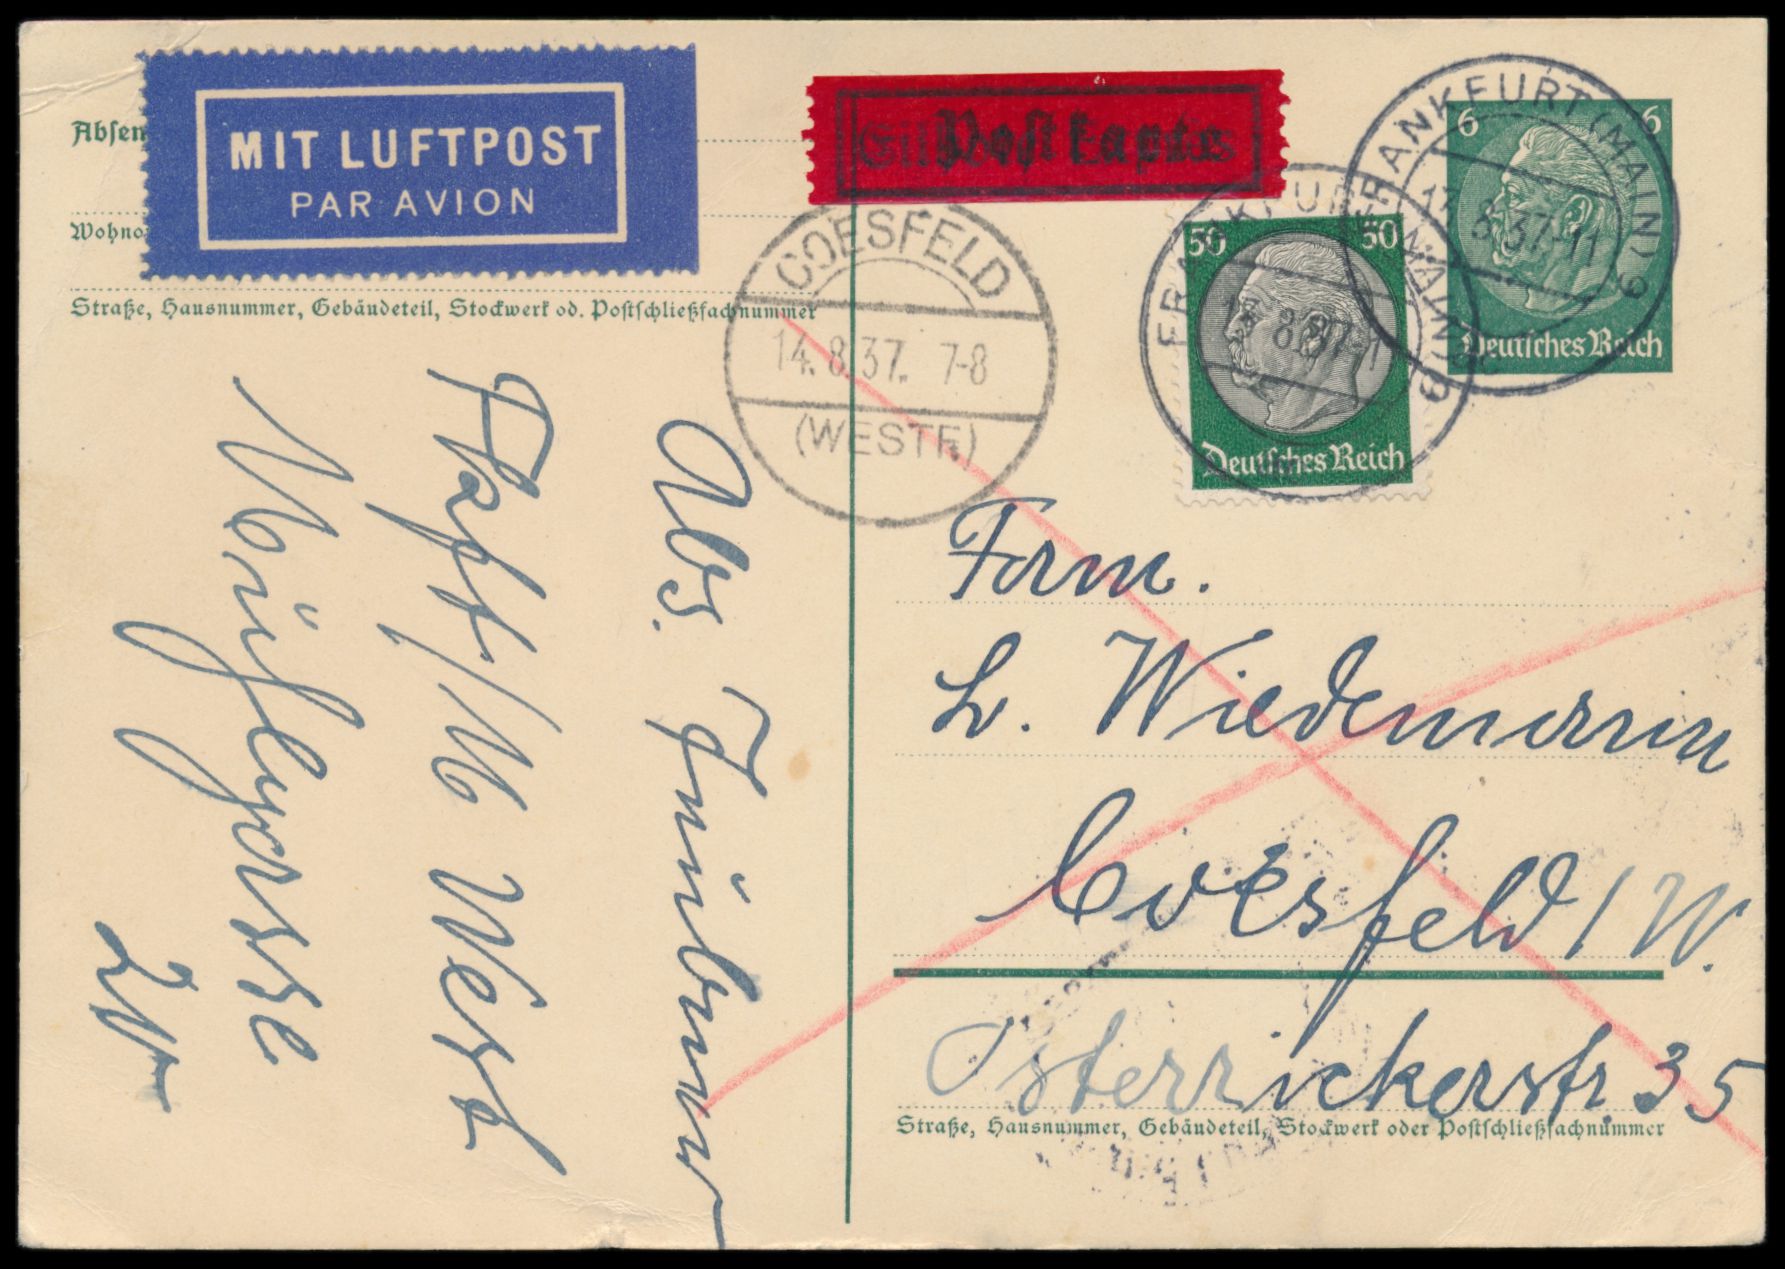 MIT LUFTPOST
PAR AVION
Absen
Wohno
Straße, Hausnummer, Gebäudeteil, Stockwerk od. Postschließfachnummer
Postkarte
COESFELD
14.8.37. 7-8
(WESTF.)
FRANKFURT (MAIN) 9
8.37-11
6 6
Deutsches Reich
FRANKFURT (MAIN) 9
50 50
Deutsches Reich
Firm.
L. Wiedemann
Coesfeld / W.
Osterwickerstr. 35
Straße, Hausnummer, Gebäudeteil, Stockwerk oder Postschließfachnummer
Abs.
/M West
20